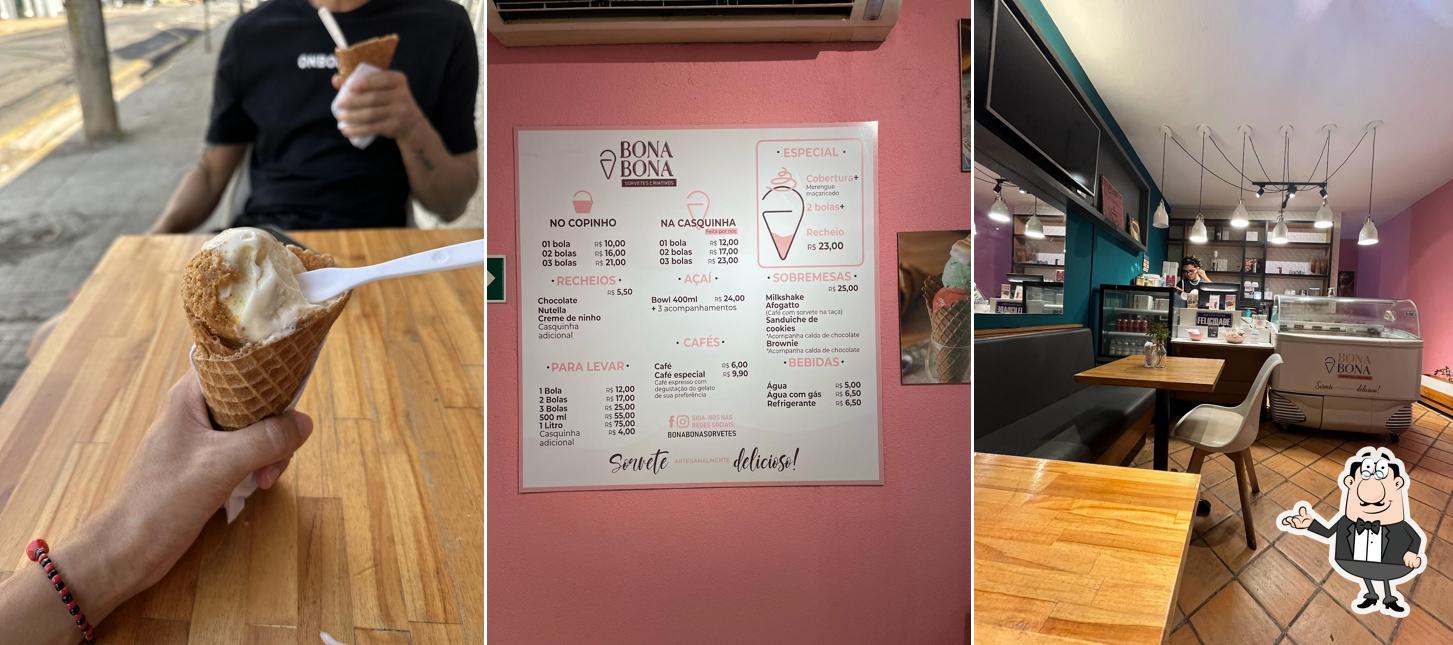 ONBO
BONA
BONA
SORVETES CRIATIVOS
NO COPINHO
01 bola R$ 10,00
02 bolas R$ 16,00
03 bolas R$ 21,00
NA CASQUINHA
Feita por nós
01 bola R$ 12,00
02 bolas R$ 17,00
03 bolas R$ 23,00
• ESPECIAL •
Cobertura+
Merengue
maçaricado
2 bolas+
Recheio
R$ 23,00
• RECHEIOS •
R$ 5,50
Chocolate
Nutella
Creme de ninho
Casquinha
adicional
• AÇAÍ •
Bowl 400ml R$ 24,00
+ 3 acompanhamentos
• SOBREMESAS •
R$ 25,00
Milkshake
Afogatto
(Café com sorvete na taça)
Sanduiche de
cookies
*Acompanha calda de chocolate
Brownie
*Acompanha calda de chocolate
• PARA LEVAR •
1 Bola R$ 12,00
2 Bolas R$ 17,00
3 Bolas R$ 25,00
500 ml R$ 55,00
1 Litro R$ 75,00
Casquinha R$ 4,00
adicional
• CAFÉS •
Café R$ 6,00
Café especial R$ 9,90
Café expresso com
degustação do gelato
de sua preferência
• BEBIDAS •
Água R$ 5,00
Água com gás R$ 6,50
Refrigerante R$ 6,50
SIGA-NOS NAS
REDES SOCIAIS:
BONABONASORVETES
Sorvete ARTESANALMENTE delicioso!
FELICIDADE
BONA
BONA
Sorvete delicioso!